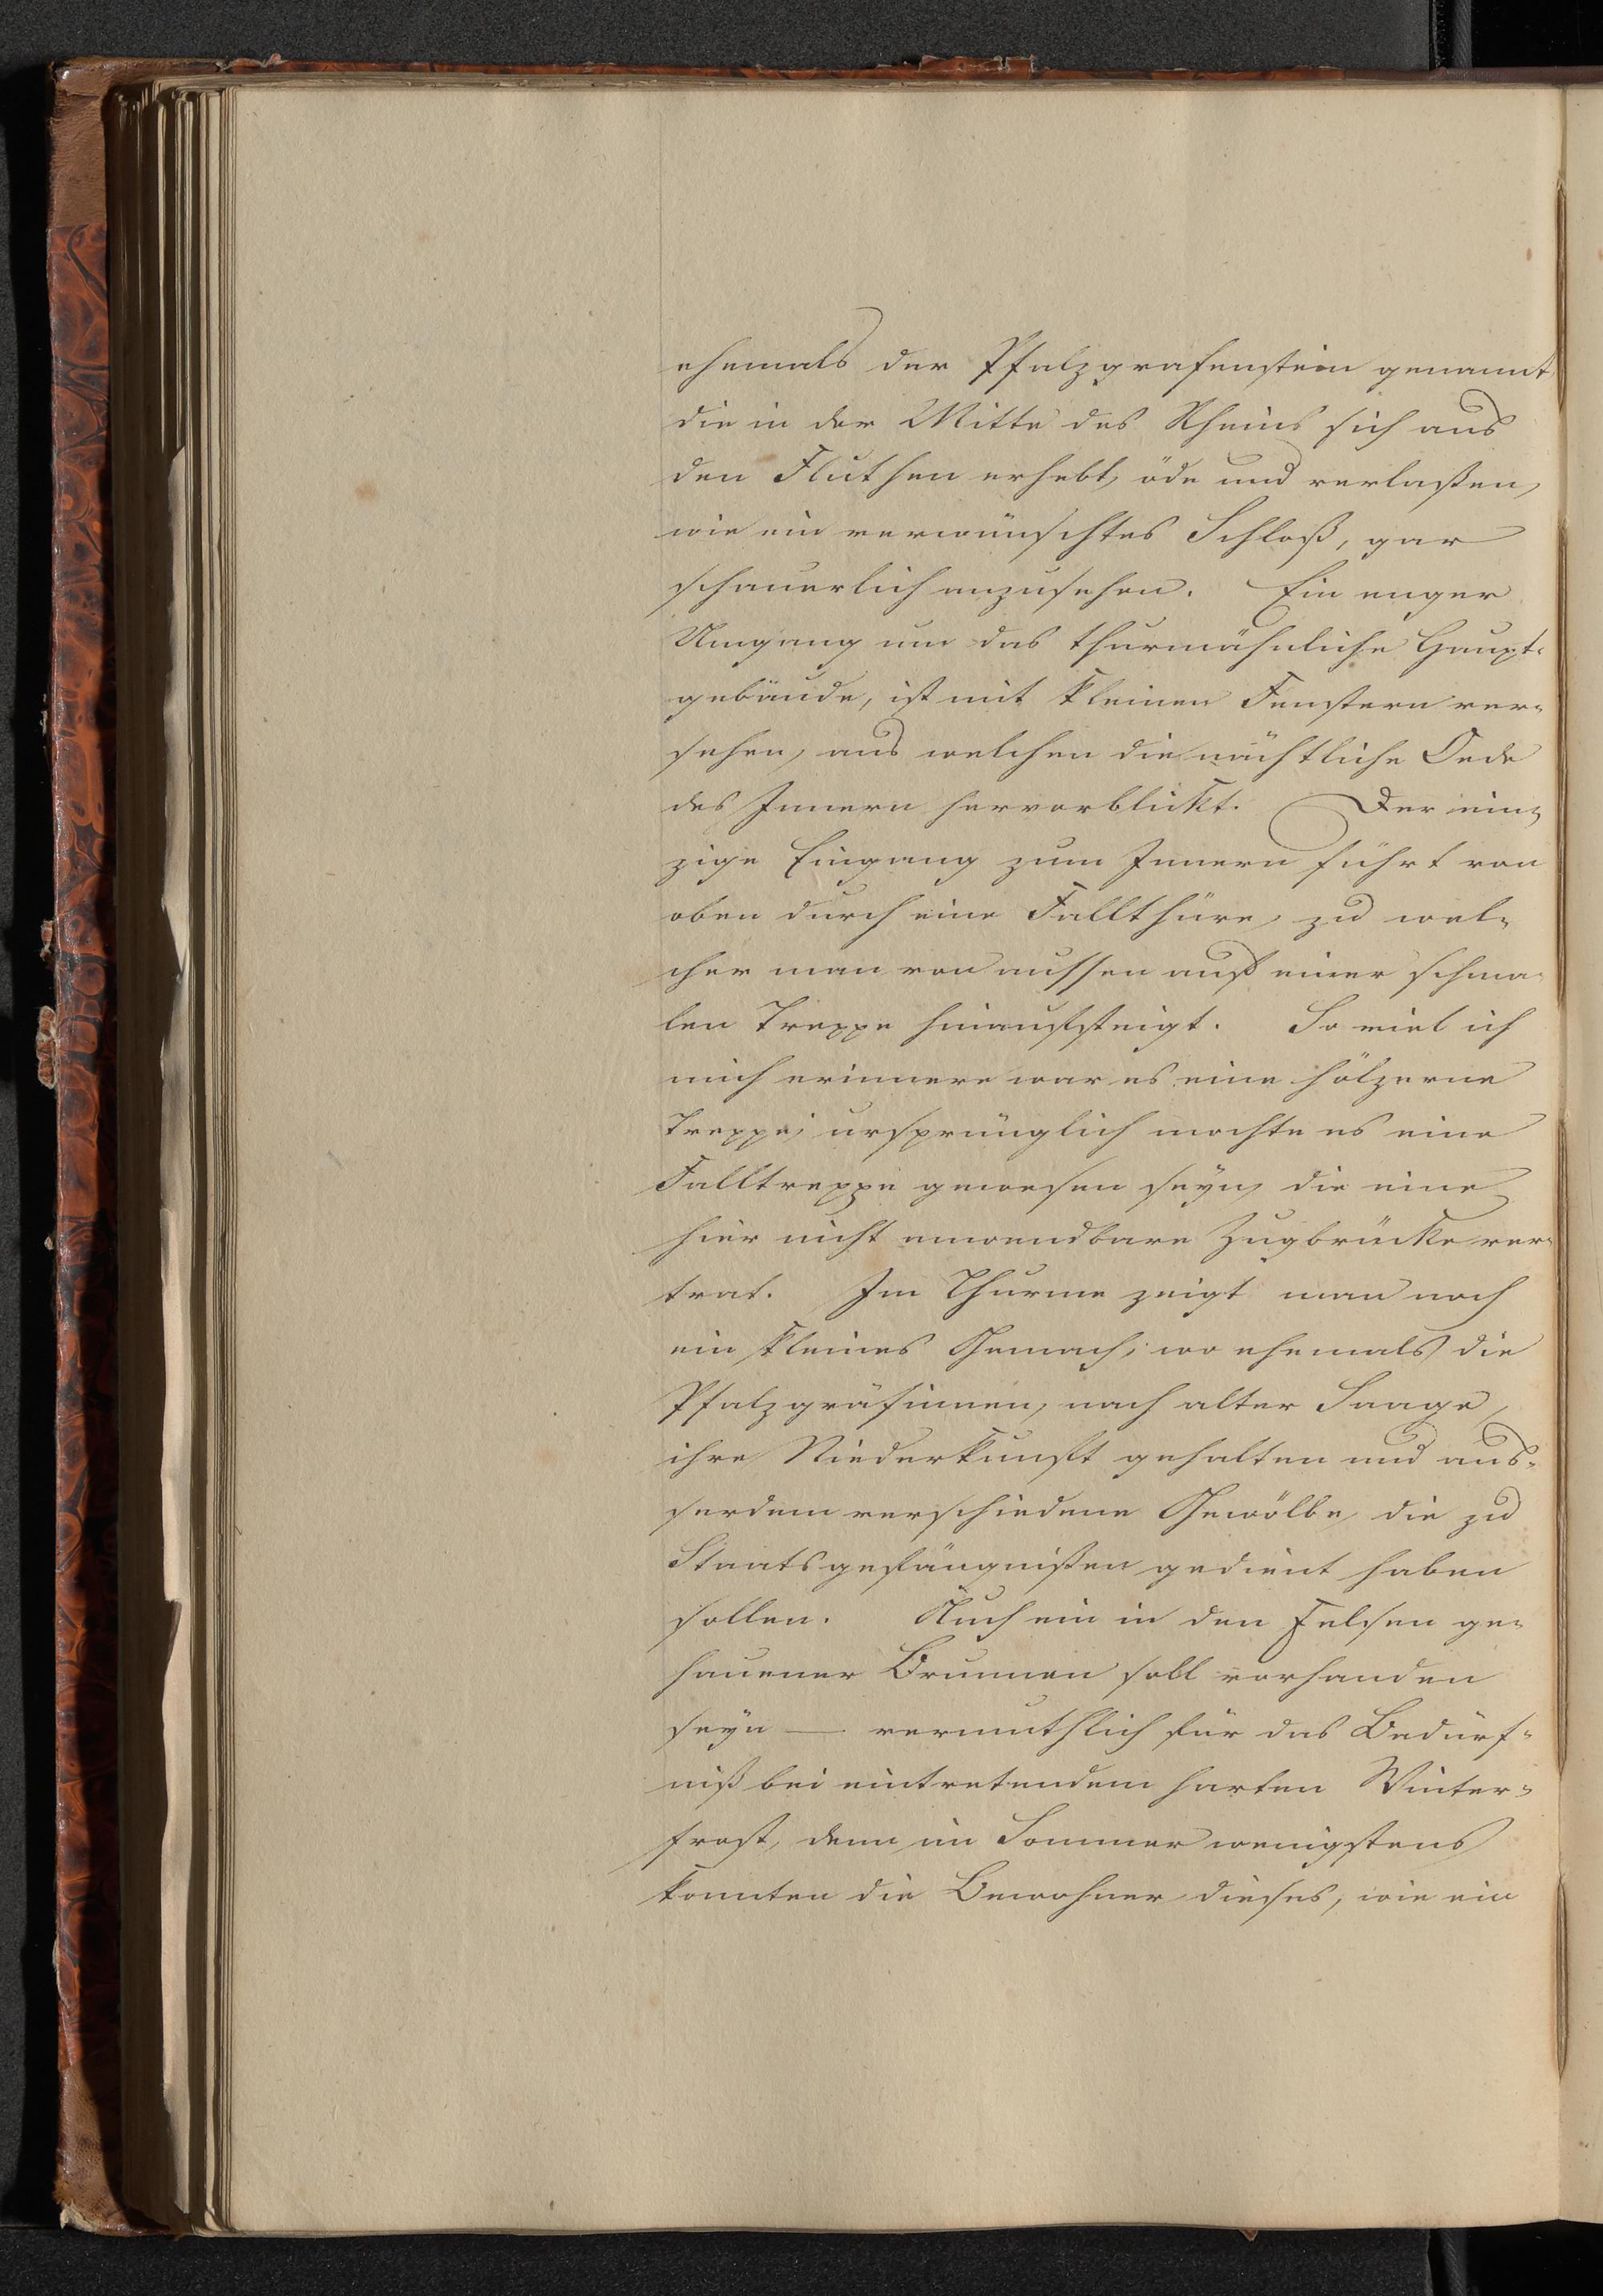 ehemals der Pfalzgrafenstein genannt
die in der Mitte des Rheins sich aus
den Fluthen erhebt, öde und verlaßen,
wie ein verwünschtes Schloß, gar
schauerlich anzusehen. Ein enger
Umgang um das thurmähnliche Haupt-
gebäude, ist mit kleinen Fenstern ver-
sehen, aus welchen die nächtliche Oede
des Innern hervorblickt. Der ein-
zige Eingang zum Innern führt von
oben durch eine Fallthüre, zu wel-
cher man von aussen auf einer schma-
len Treppe hinaufsteigt. So viel ich
mich erinnere war es eine hölzerne
Treppe; ursprünglich mochte es eine
Falltreppe gewesen seyn, die eine
hier nicht anwendbare Zugbrücke ver-
trat. Im Thurme zeigt man noch
ein kleines Gemach, wo ehemals die
Pfalzgräfinnen, nach alter Saage,
ihre Niederkunft gehalten und aus-
serdem verschiedene Gewölbe, die zu
Staatsgefängnißen gedient haben
sollen. Auch ein in den Felsen ge-
hauener Brunnen soll vorhanden
seyn — vermuthlich für das Bedürf-
niß bei eintretendem harten Winter-
frost, denn im Sommer wenigstens
konnten die Bewohner dieses, wie ein